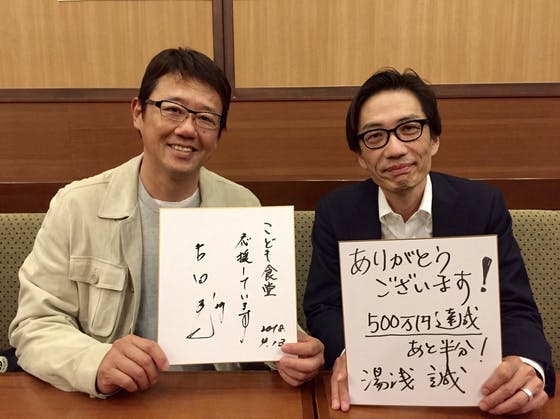 こども食堂
応援しています
2018
ありがとう
ございます！
500万円達成
あと半分！
湯浅 誠